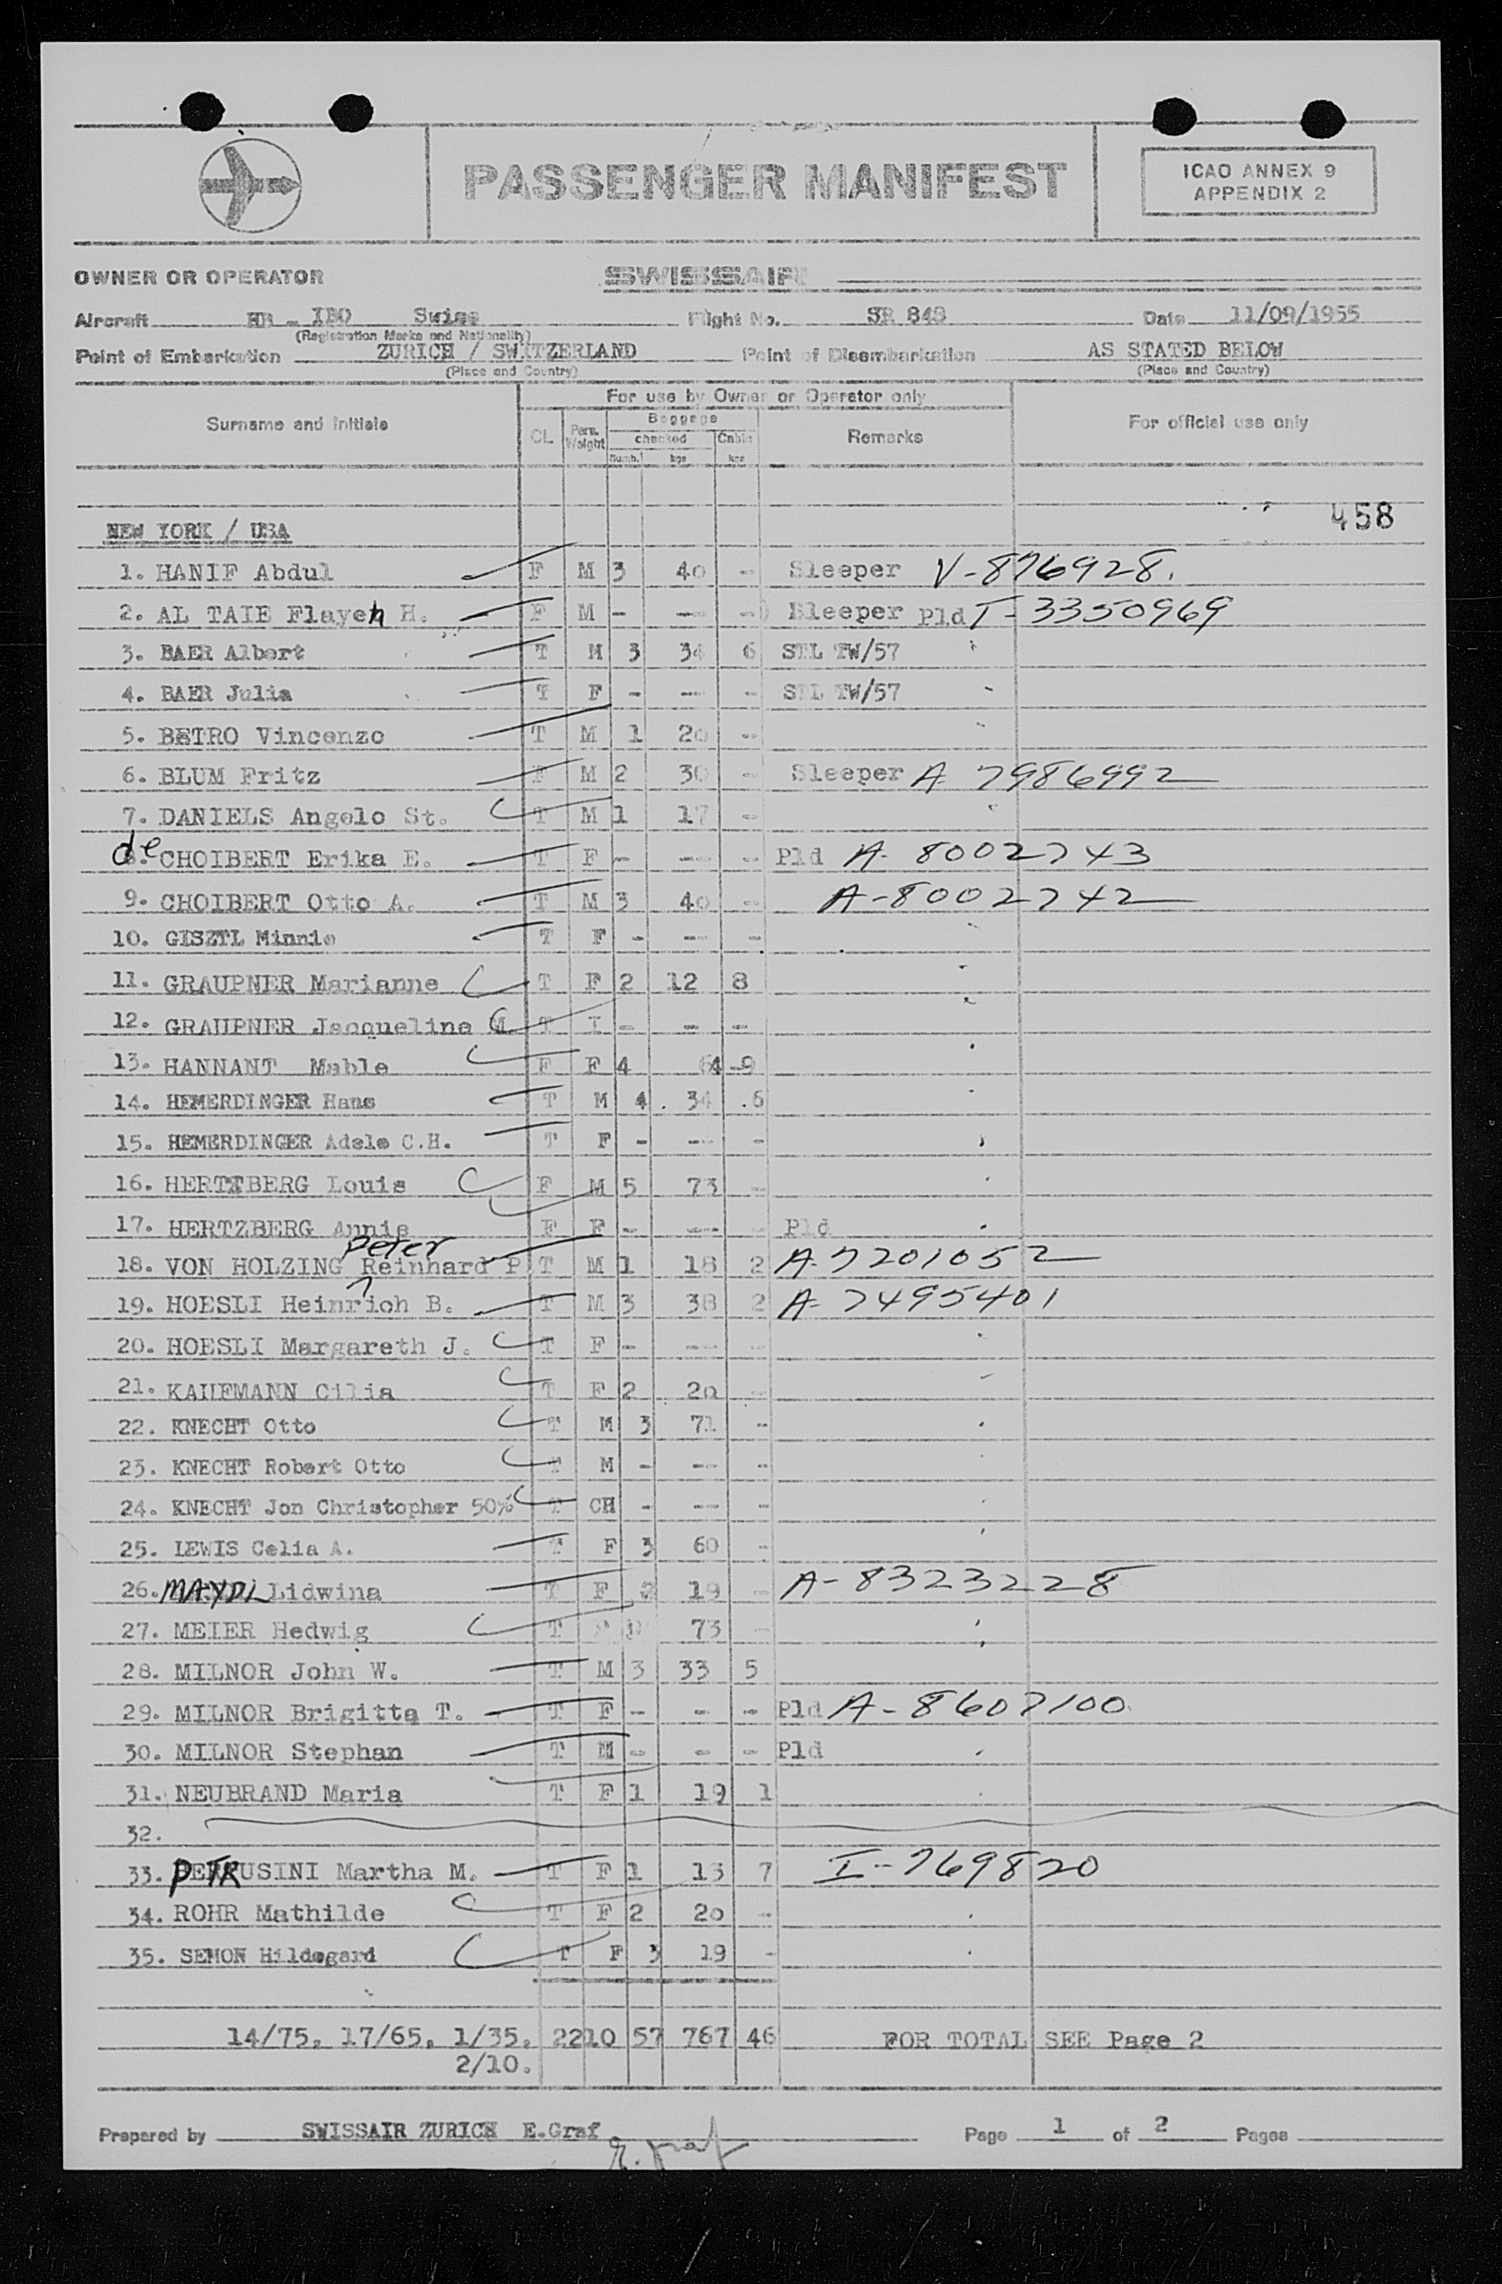 PASSENGER MANIFEST
ICAO ANNEX 9
APPENDIX 2
OWNER OR OPERATOR SWISSAIR
Aircraft HB - IBO Swiss Flight No. SR 848 Date 11/09/1955
(Registration Marks and Nationality)
Point of Embarkation ZURICH / SWITZERLAND Point of Disembarkation AS STATED BELOW
(Place and Country) (Place and Country)
For use by Owner or Operator only
Surname and initials CL Pers. Weight Baggage checked Numb. kgs Cabin kgs Remarks For official use only
458
NEW YORK / USA
1. HANIF Abdul F M 3 40 - Sleeper V-876928.
2. AL TAIE Flayeh H. F M - --- - Sleeper Pld I-3350969
3. BAER Albert T M 3 34 6 STL TW/57
4. BAER Julia T F - --- - STL TW/57
5. BETRO Vincenzo T M 1 20 -
6. BLUM Fritz F M 2 30 - Sleeper A 7986992
7. DANIELS Angelo St. T M 1 17 -
de CHOIBERT Erika E. T F - --- - Pld A-8002743
9. CHOIBERT Otto A. T M 3 40 - A-8002742
10. GISZTL Minnie T F - --- -
11. GRAUPNER Marianne T F 2 12 8
12. GRAUPNER Jacqueline M T I - - -
13. HANNANT Mable F F 4 64 9
14. HEMERDINGER Hans T M 4 34 6
15. HEMERDINGER Adele C.H. T F - --- -
16. HERTZBERG Louis F M 5 73 -
17. HERTZBERG Annie F F - --- - Pld
Peter
18. VON HOLZING Reinhard P T M 1 18 2 A-7201052
19. HOESLI Heinrich B. T M 3 38 2 A-7495401
20. HOESLI Margareth J. T F - --- -
21. KAUFMANN Cilia T F 2 20 -
22. KNECHT Otto T M 3 71 -
23. KNECHT Robert Otto T M - --- -
24. KNECHT Jon Christopher 50% T CH - --- -
25. LEWIS Celia A. T F 3 60 -
26. MAYDL Lidwina T F 2 19 - A-8323228
27. MEIER Hedwig T 73 -
28. MILNOR John W. T M 3 33 5
29. MILNOR Brigitta T. T F - - - Pld A-8607100
30. MILNOR Stephan T M - - - Pld
31. NEUBRAND Maria T F 1 19 1
32.
33. PETRUSINI Martha M. T F 1 13 7 I-769820
34. ROHR Mathilde T F 2 20 -
35. SEMON Hildegard T F 3 19 -
14/75, 17/65, 1/35, 2210 57 767 46 FOR TOTAL SEE Page 2
2/10.
Prepared by SWISSAIR ZURICH E.Graf E. Graf Page 1 of 2 Pages